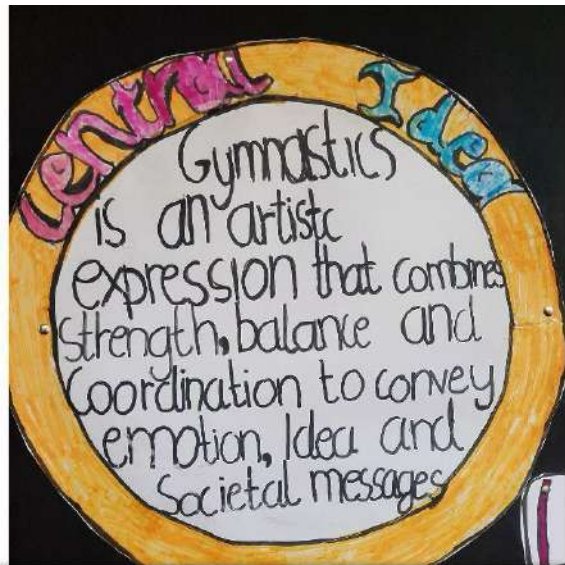 Central Idea
Gymnastics
is an artistc
expression that combines
strength, balance and
Coordination to convey
emotion, Idea and
Societal messages